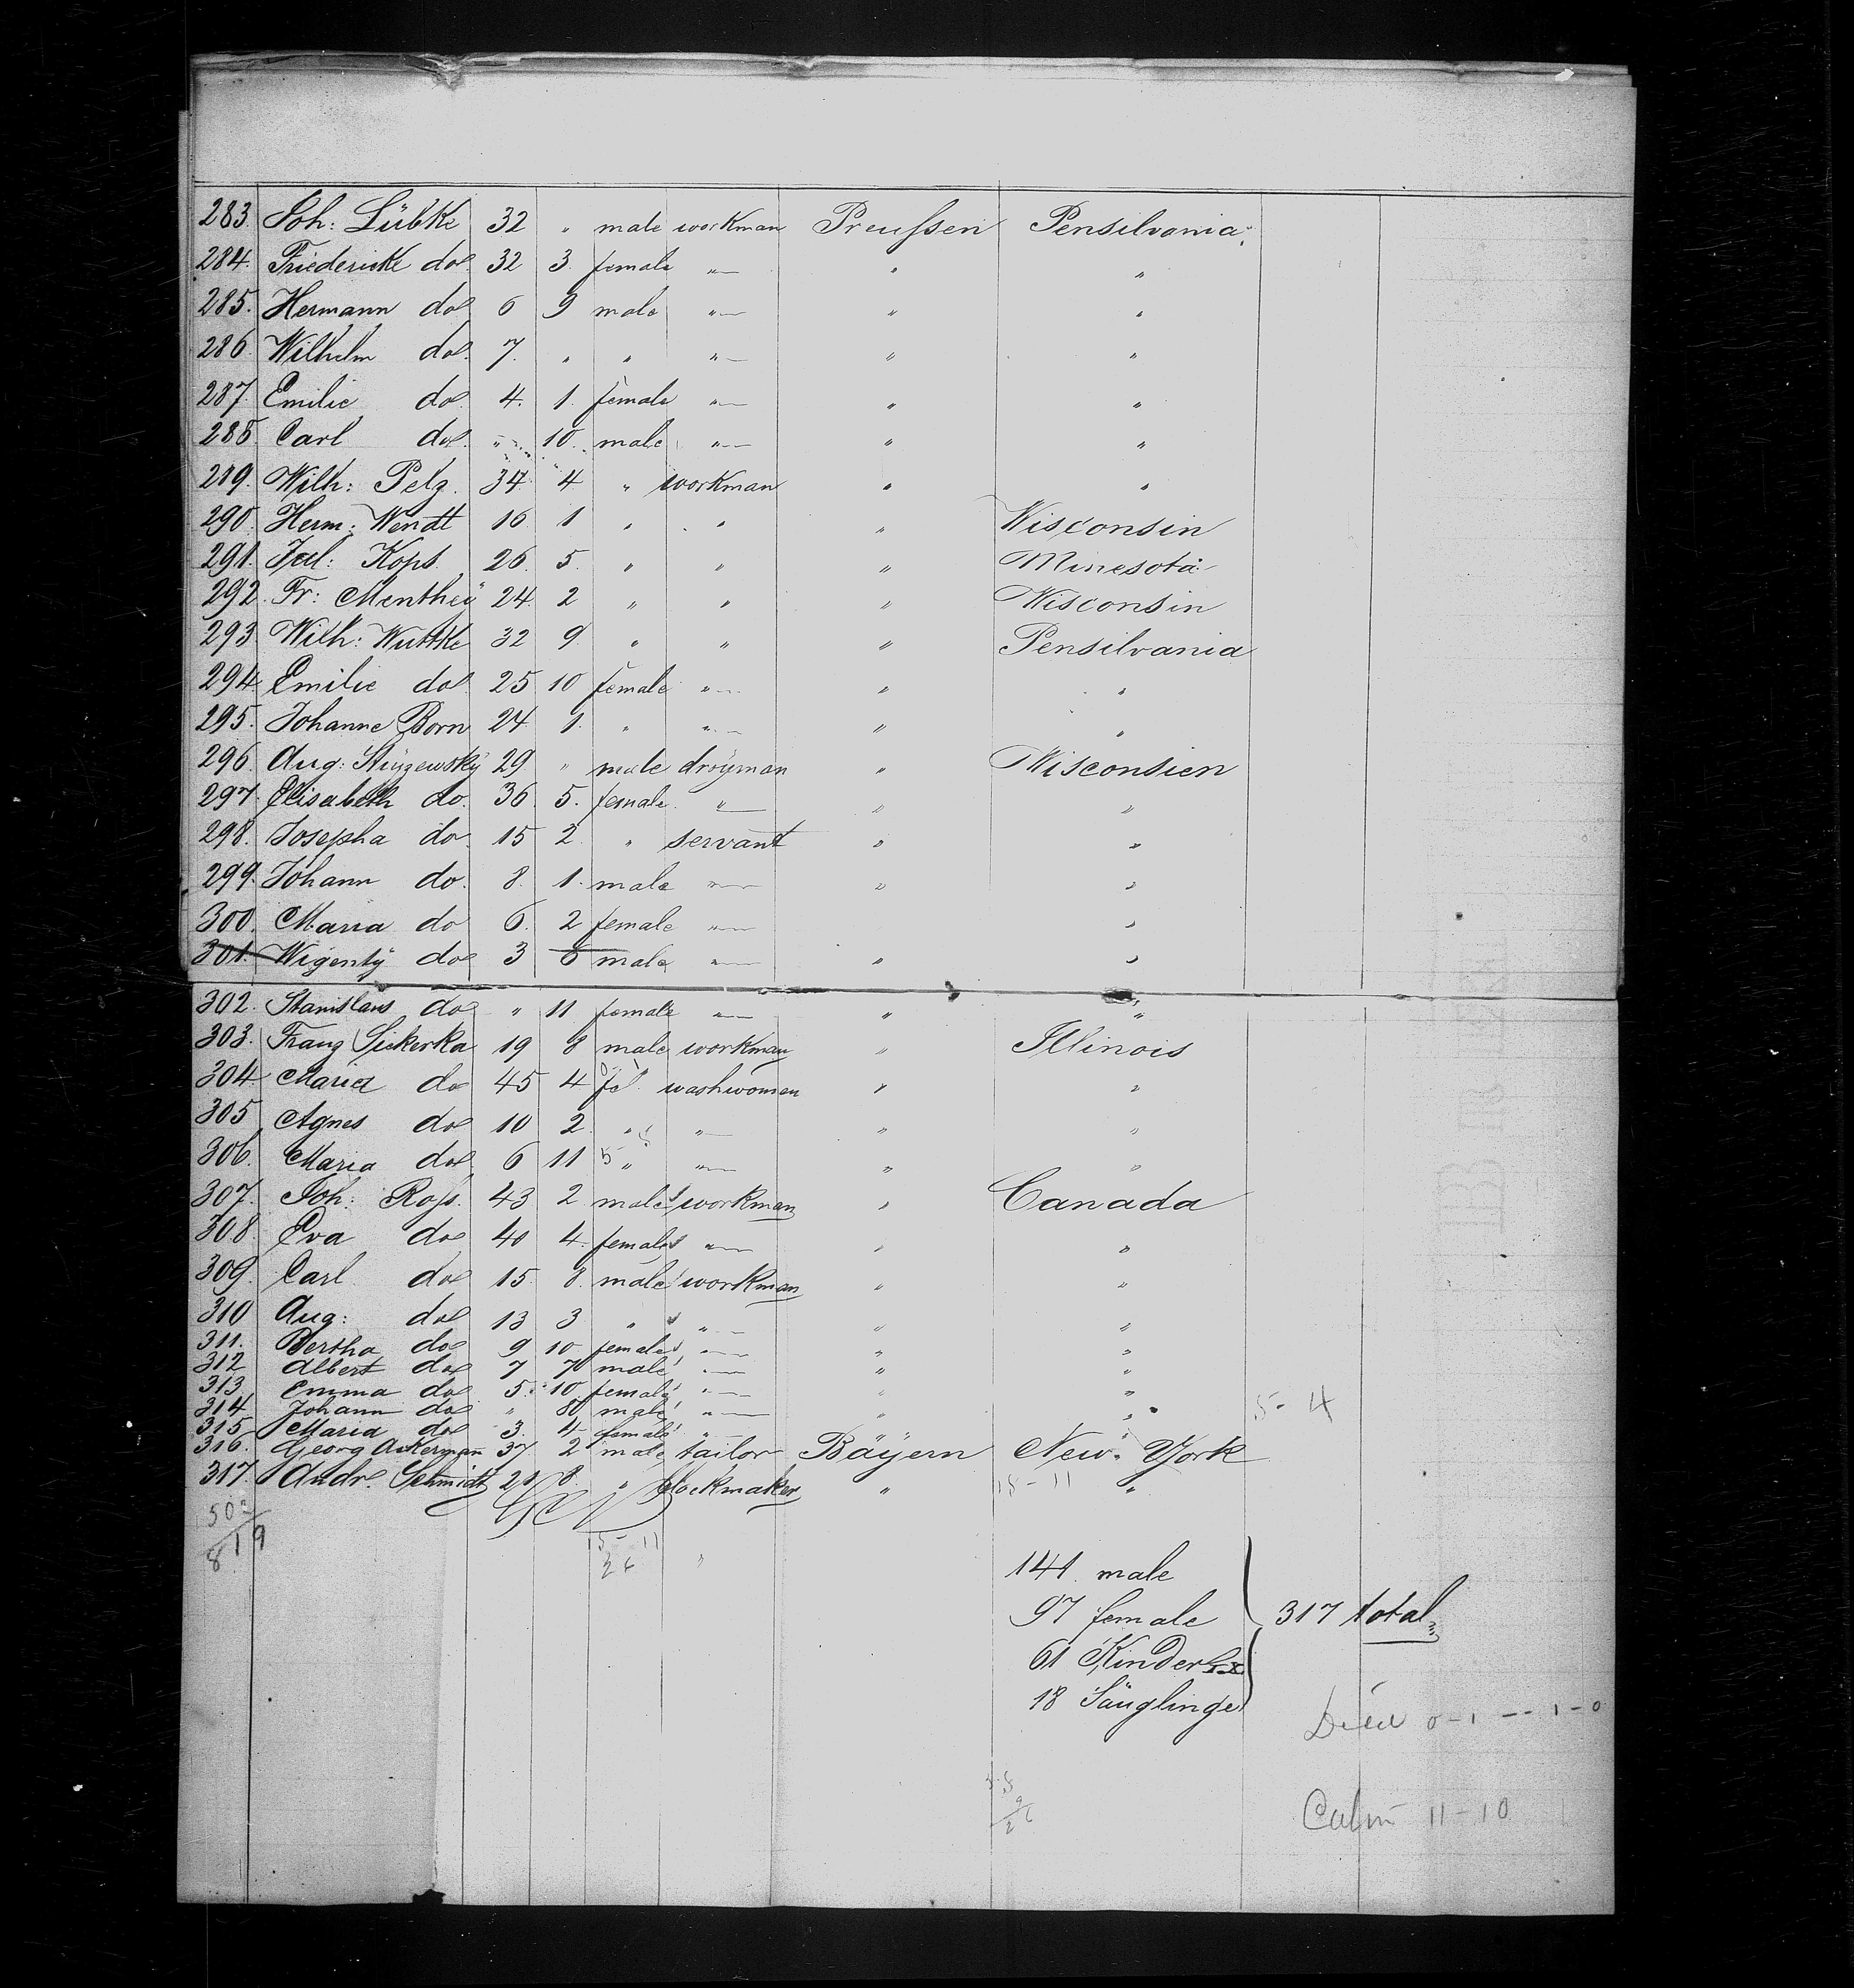 283. Joh: Lübke 32 " male workman Preußen Pensilvania
284. Friedericke do 32 3 female "— " "
285. Hermann do 6 9 male "— " "
286. Wilhelm do. 7. " " "— " "
287. Emilie do 4. 1. female "— " "
288. Carl do. " 10. male "— " "
289. Wilh: Pelz. 34 4 " workman " "
290. Herm: Wendt 16 1 " " " Wisconsin
291. Jul: Kops. 26. 5. " " " Minesota
292. Fr: Menthey 24. 2 " " " Wisconsin
293. Wilh: Wuttke 32 9 " " " Pensilvania
294. Emilie do 25 10 female "— " "
295. Johanne Born 24 1. " "— " "
296. Aug: 29 " male " Wisconsien
297. Elisabeth do. 36. 5. female. "— " "
298. Josepha do. 15 2 " servant " "
299. Johann do. 8. 1. male "— " "
300. Maria do 6. 2 female "— "
301. Wigenty do 3 6 male "— " "
302. Stanislaus do " 11 female "— " "
303. Franz Sickerka 19 8 male workman " Illinois
304 Maria do 45 4 fe washwoman " "
305 Agnes do 10 2 " "— " "
306. Maria do 6 11 " "— " "
307. Joh: Roß. 43 2 male workman " Canada
308. Eva do 40 4. female "— " "
309. Carl do 15. 8. male workman " "
310 Aug: do 13 3 " "— " "
311. Bertha do 9 10 female "— " "
312 Albert do 7 7 male "— " "
313 Emma do 5. 10. female "— " "
314 Johann do " 8 male "— " "
5-4
315 Maria do 3. 4 female " "
316. Georg Ackerman 37 2 male tailor Bäyern New-York
317. Andr. Schmidt 21 8. " clockmaker " "
15-11
15-11
141. male
97 female
317 total
61 Kinder
18 Säuglinge
Died 0-1 -- 1-0
11-10